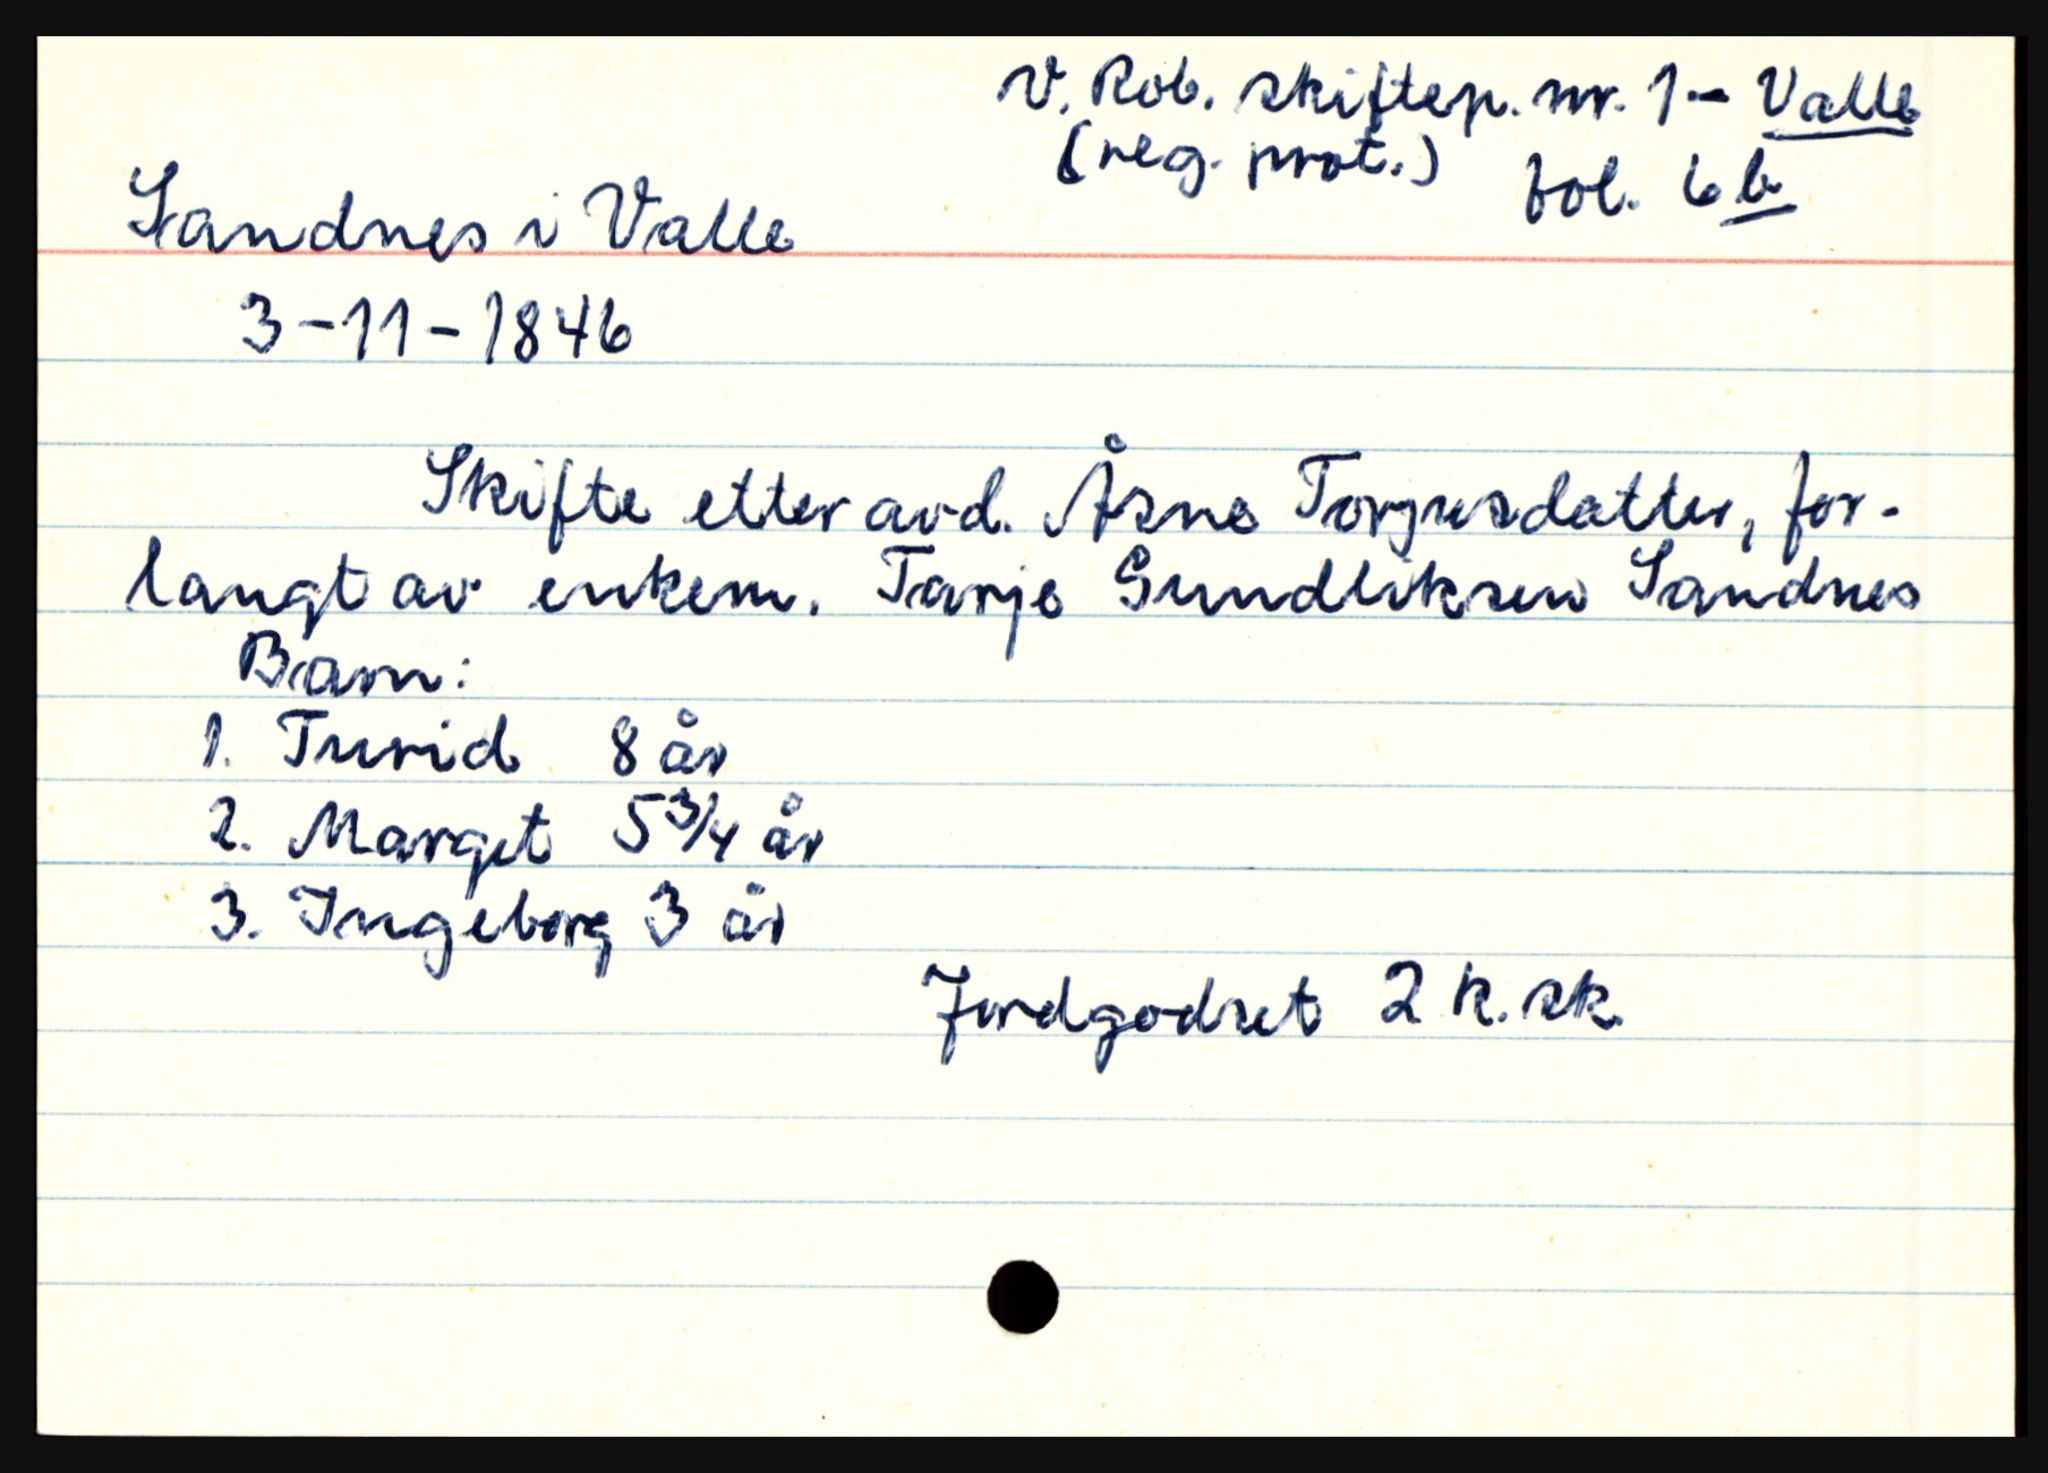 V. Rob. skiftep. nr. 1 - Valle
(reg. prot.) fol. 6b
Sandnes i Valle
3-11-1846
Skifte etter avd. Åsne Torjusdatter, for-
langt av enkem. Tarje Gundliksen Sandnes
Barn:
1. Turid 8 år
2. Marget 5 3/4 år
3. Ingeborg 3 år
Jordgodset 2 k. sk.